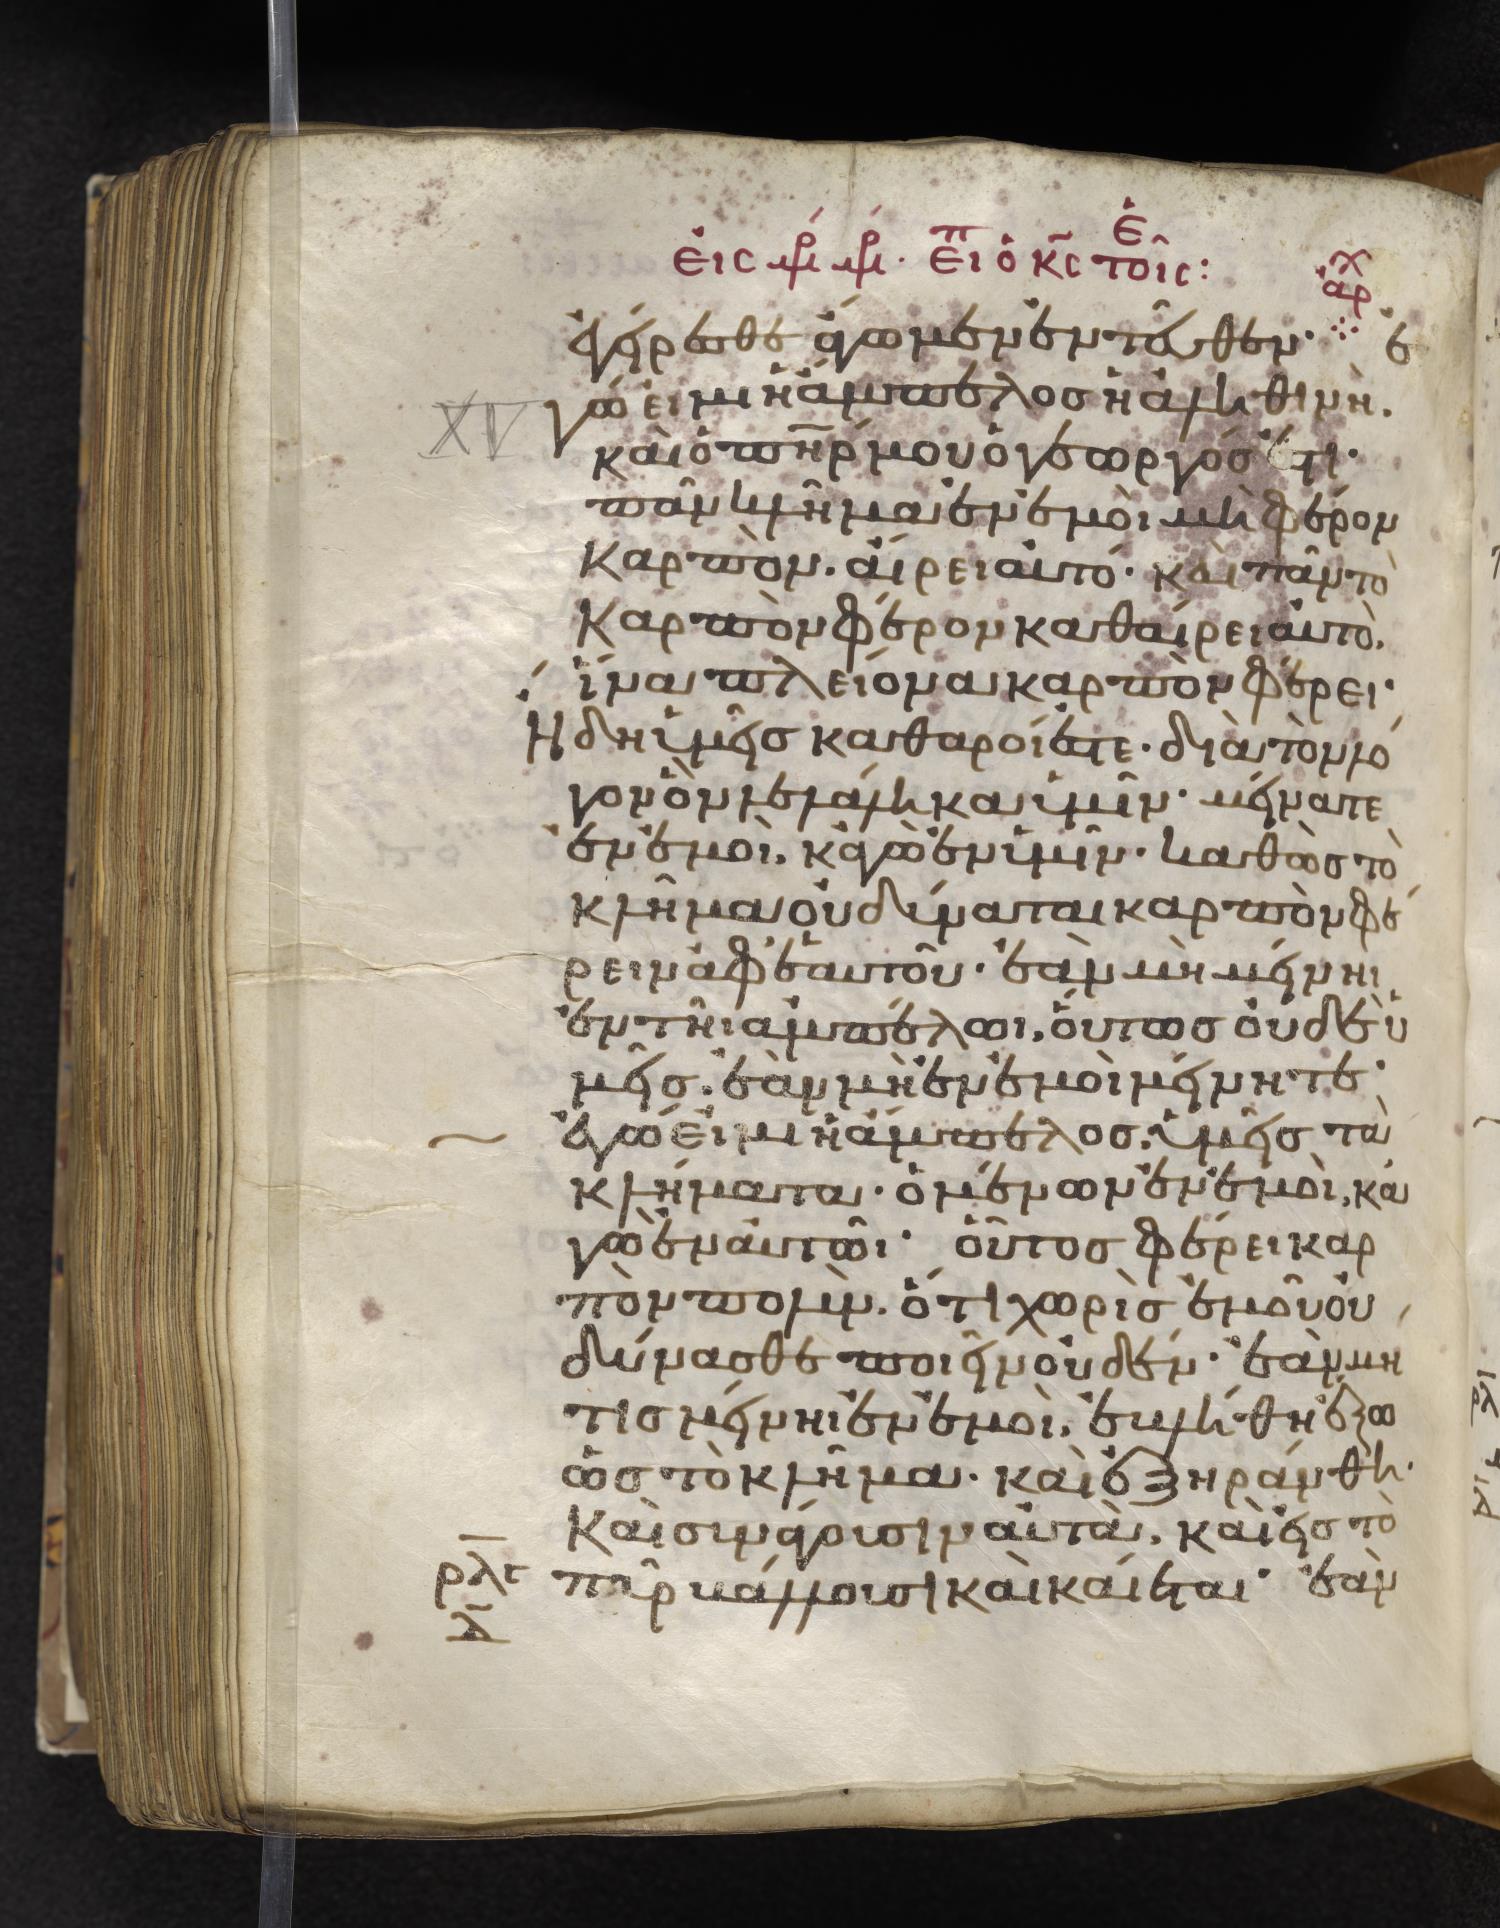 εἰς μρ μρ. εἶπ ὁ κς τοῖς ἑ:
ἀρχ
ἐγείρεσθε ἄγωμεν ἐντεῦθεν· ἐ
γώ εἰμι ἡ ἄμπελος ἡ ἀληθινὴ.
καὶ ὁ πηρ μου ὁ γεωργός ἐστι·
πᾶν κλῆμα ἐν ἐμοὶ μὴ φέρον
καρπὸν. αἴρει αυτό· καὶ πᾶν τὸ
καρπὸν φέρον καθαίρει ἀυτὸ.
ἵνα πλείονα καρπὸν φέρει·
Ήδη ὑμεῖς καθαροί ἐστε· διὰ τὸν λό
γον ὃν λελάληκα ὑμῖν· μείνατε
ἐν ἐμοὶ, κἀγὼ ἐν ὑμῖν· καθὼσ τὸ
κλῆμα οὐ δύναται καρπὸν φέ
ρειν ἀφ' ἑαυτοῦ· ἐὰν μὴ μείνηι
ἐν τῆι αμπέλωι, ὅυτωσ ὀυδὲ ὑ
μεῖσ. ἐὰν μὴ ἐν ἐμοὶ μείνητε·
ἐγώ εἰμι ἡ ἄμπελοσ. ὑμεῖσ τὰ
κλήματα· ὁ μένων ἐν ἐμοὶ, κα
γὼ ἐν ἀυτῶι· ὅυτοσ φέρει καρ
πὸν πολὺν. ὅτι χωρὶσ ἐμοῦ ὀυ
δύνασθε ποιεῖν ὀυδέν· ἐὰν μη
τισ μείνηι ἐν ἐμοὶ, ἐβλήθη ἔξω
ὡσ τὸ κλῆμα. καὶ ἐξηράνθη·
Καὶ συνάγουσιν ἀυτὰ, καὶ εἰσ τὸ
ρλς
πῦρ βάλλουσι καὶ καίεται· ἐὰν
δ
XV